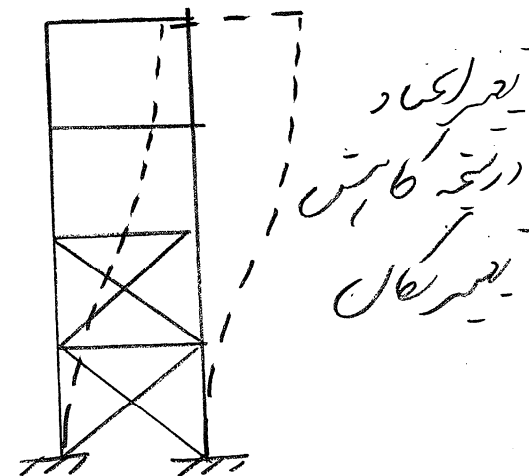 تغییر انحناء
در نتیجه کاهش
تغییر مکان